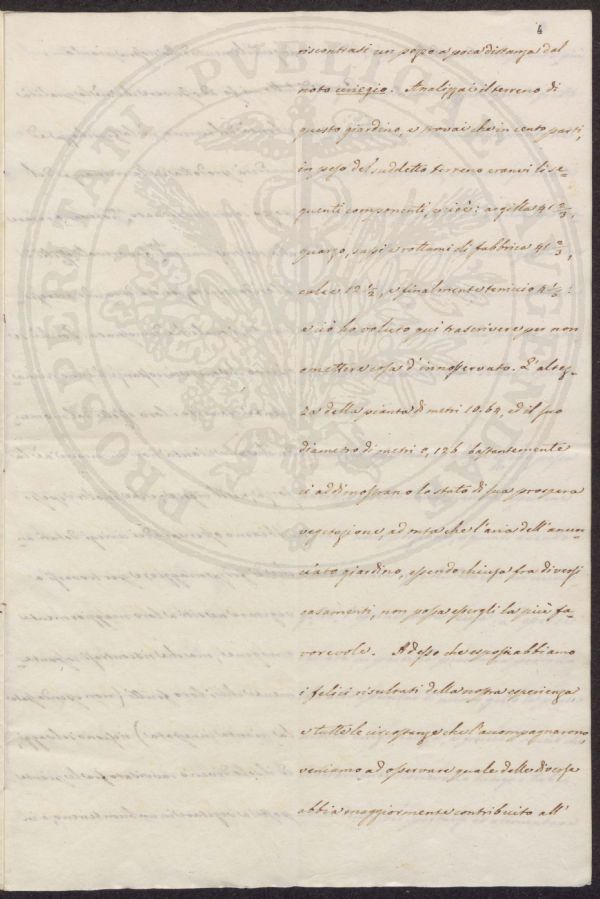 4
riscontrasi un pozzo a poca distanza dal
noto ciriegio. Analizzai il terreno di
questo giardino, e trovai che in cento parti,
in peso del suddetto terreno eranvi li se-
guenti componenti, cioè: argilla 41 2/3,
quarzo, sassi e rottami di fabbrica 41 2/3,
calce 12 1/2, e finalmente terriccio 4 1/6:
e ciò ho voluto qui trascrivere per non
omettere cosa d'innosservato. L'altez-
za della pianta di metri 10.64, ed il suo
diametro di metri 0,126 bastantemente
ci addimostrano lo stato di sua prospera
vegetazione, ad onta che l'aria dell'anun-
ciato giardino, essendo chiuso fra diversi
casamenti, non possa essergli la più fa-
vorevole. Adesso che esposti abbiamo
i felici risultati della nostra esperienza
e tutte le circostanze che l'accompagnarono,
veniamo ad osservare quale delle diverse
abbia maggiormente contribuito all'
PROSPERITATI PUBLICAE AUGENDAE